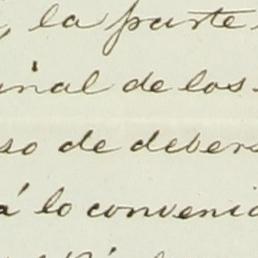 , la parte
inal de los
so de debers
á lo convenid